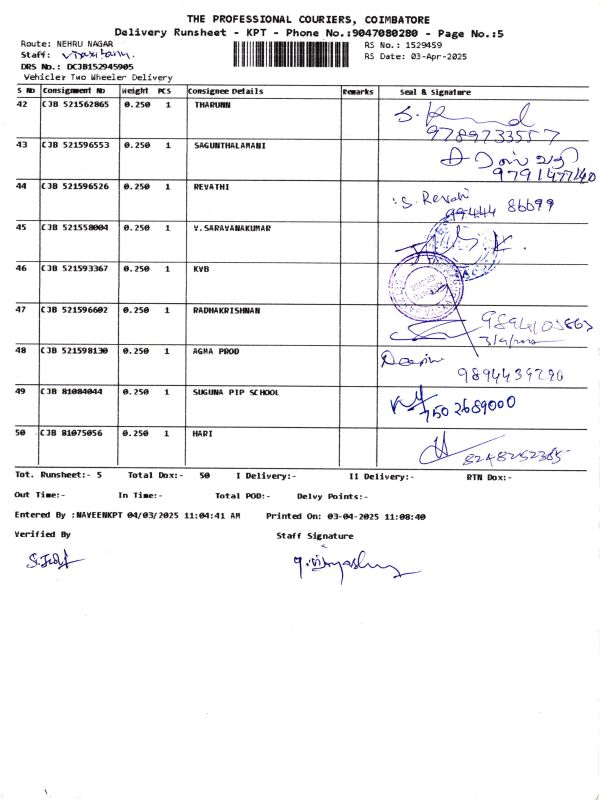 THE PROFESSIONAL COURIERS, COIMBATORE
Delivery Runsheet - KPT - Phone No.:9047080280 - Page No.:5
Route: NEHRU NAGAR RS No.: 1529459
Staff: RS Date: 03-Apr-2025
DRS No.: DCJB152945905
Vehicle: Two Wheeler Delivery
S No Consignment No Weight PCS Consignee Details Remarks Seal & Signature
42 CJB 521562865 0.250 1 THARUNN
9789733557
43 CJB 521596553 0.250 1 SAGUNTHALAMANI
9791477140
44 CJB 521596526 0.250 1 REVATHI S. Revathi
99444 86699
45 CJB 521558004 0.250 1 V.SARAVANAKUMAR
46 CJB 521593367 0.250 1 KVB
47 CJB 521596602 0.250 1 RADHAKRISHNAN
48 CJB 521598130 0.250 1 AGMA PROD
9894439290
49 CJB 81084044 0.250 1 SUGUNA PIP SCHOOL 750 2689000
50 CJB 81075056 0.250 1 HARI
8248252365
Tot. Runsheet:- 5 Total Dox:- 50 I Delivery:- II Delivery:- RTN Dox:-
Out Time:- In Time:- Total POD:- Delvy Points:-
Entered By :NAVEENKPT 04/03/2025 11:04:41 AM Printed On: 03-04-2025 11:08:40
Verified By Staff Signature